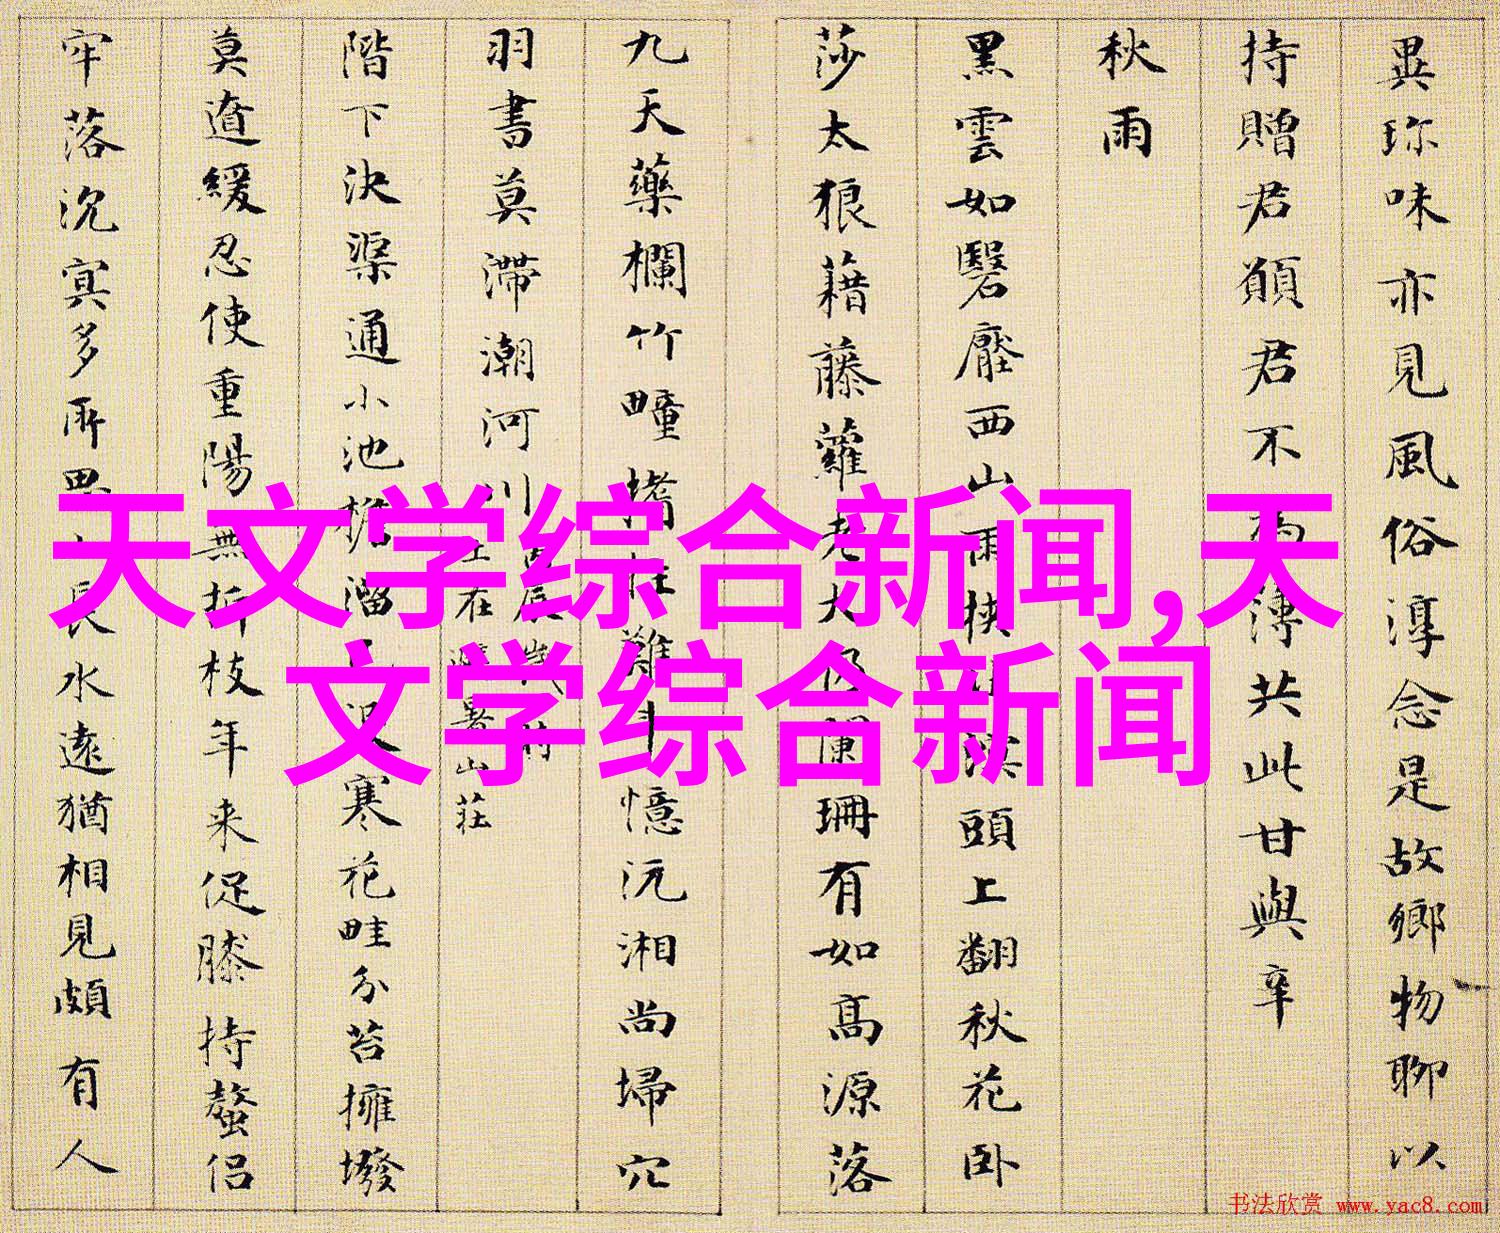 異珎味亦見風俗淳念是故鄉物聊以
持贈君願君不為薄共此甘與辛
秋雨
黑雲如翳壓西山雨挾溪頭上翻秋花卧
莎太狼藉藤蘿老大仍闌珊有如高源落
九天藥欄竹疃堵難憶沅湘尚埽穴
羽書莫滯潮河川
在山莊
階下決渠通小池寒花畦分苔擁墢
莫遒緩忍使重陽無折枝年来促膝持螯侣
牢落沉冥多所思長水遠猶相見頗有人
天文学综合新闻,天
文学综合新闻
书法欣赏 www.yac8.com